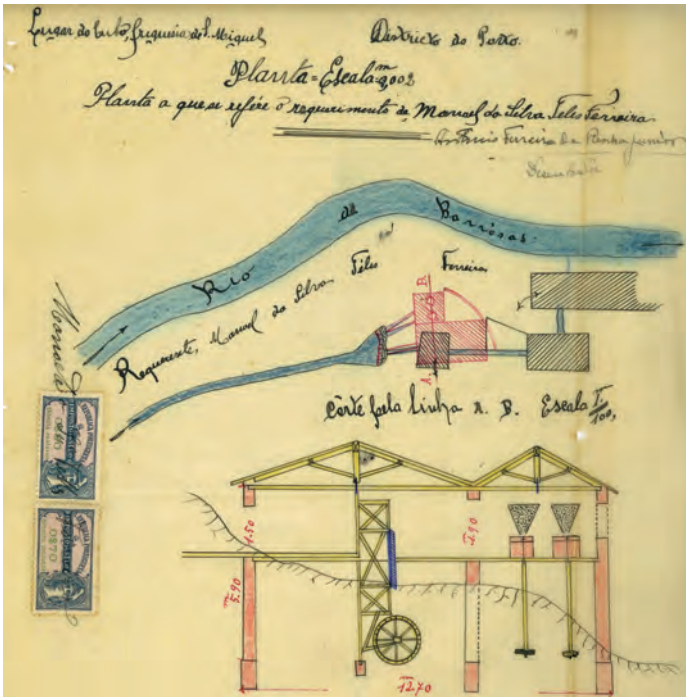 Lugar do Outo, freguesia de S. Miguel
Districto do Porto.
Planta = Escala 0,002 m
Planta a que se refére o requerimento de Manuel da Silva Teles Ferreira
António Ferreira da Rocha Junior
Rio de Barrosas
Requerente, Manoel da Silva Téles Ferreira
A. B.
Manoel
Côrte pela linha A. B. Escala 1/100,
1.50
2.90
m 5.90
0$70
12.70